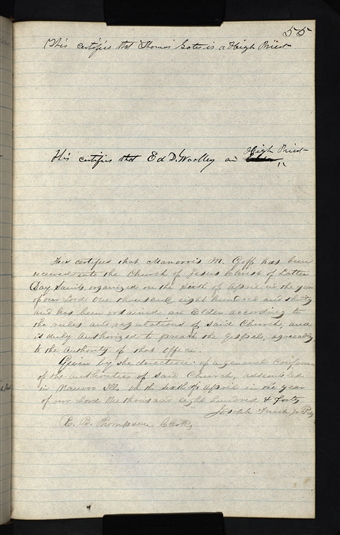 55
This certifies that Thomas Gates is a High Priest
This certifies that Ed D. Woolley an High Priest
This certifies that M. Goff has been
received into the Church of Jesus Christ of Latter
Day Saints organized on the sixth of April in the year
of our Lord One thousand eight hundred and thirty
and has been ordained an Elder according to
the rules and regulations of said Church, and
is duly authorized to preach the Gospel, agreeably
to the authority of that office.
Given by the direction of a general Conference
of the authorities of said Church, assembled
in Nauvoo Ill. on the sixth of April in the year
of our Lord One thousand eight hundred & forty
Joseph Smith Jr
Thompson Clerk